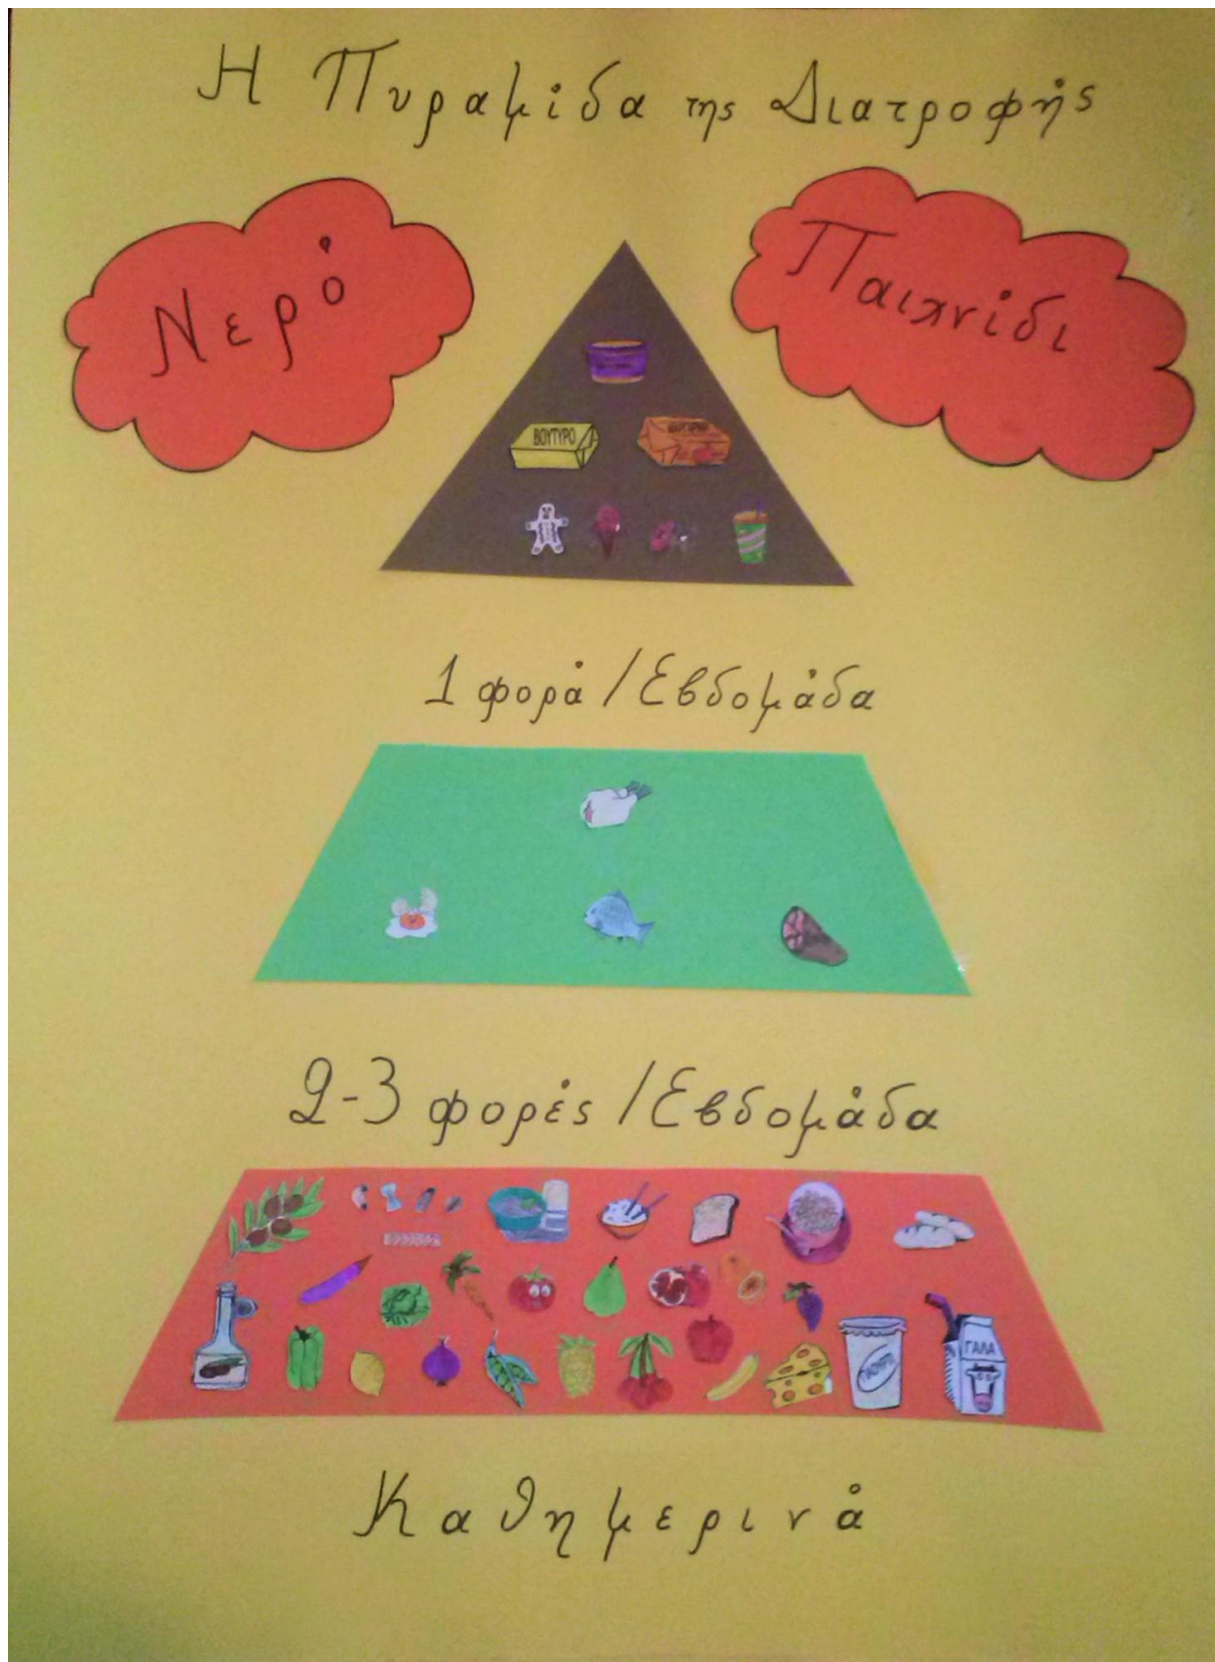 Η Πυραμίδα της Διατροφής
Νερό
Παιχνίδι
ΒΟΥΤΥΡΟ
1 φορά / Εβδομάδα
2-3 φορές / Εβδομάδα
ΓΑΛΑ
Καθημερινά